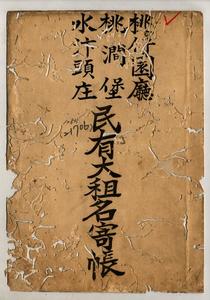 桃園廳
桃澗堡
水汴頭庄
民有大租名寄帳
1706